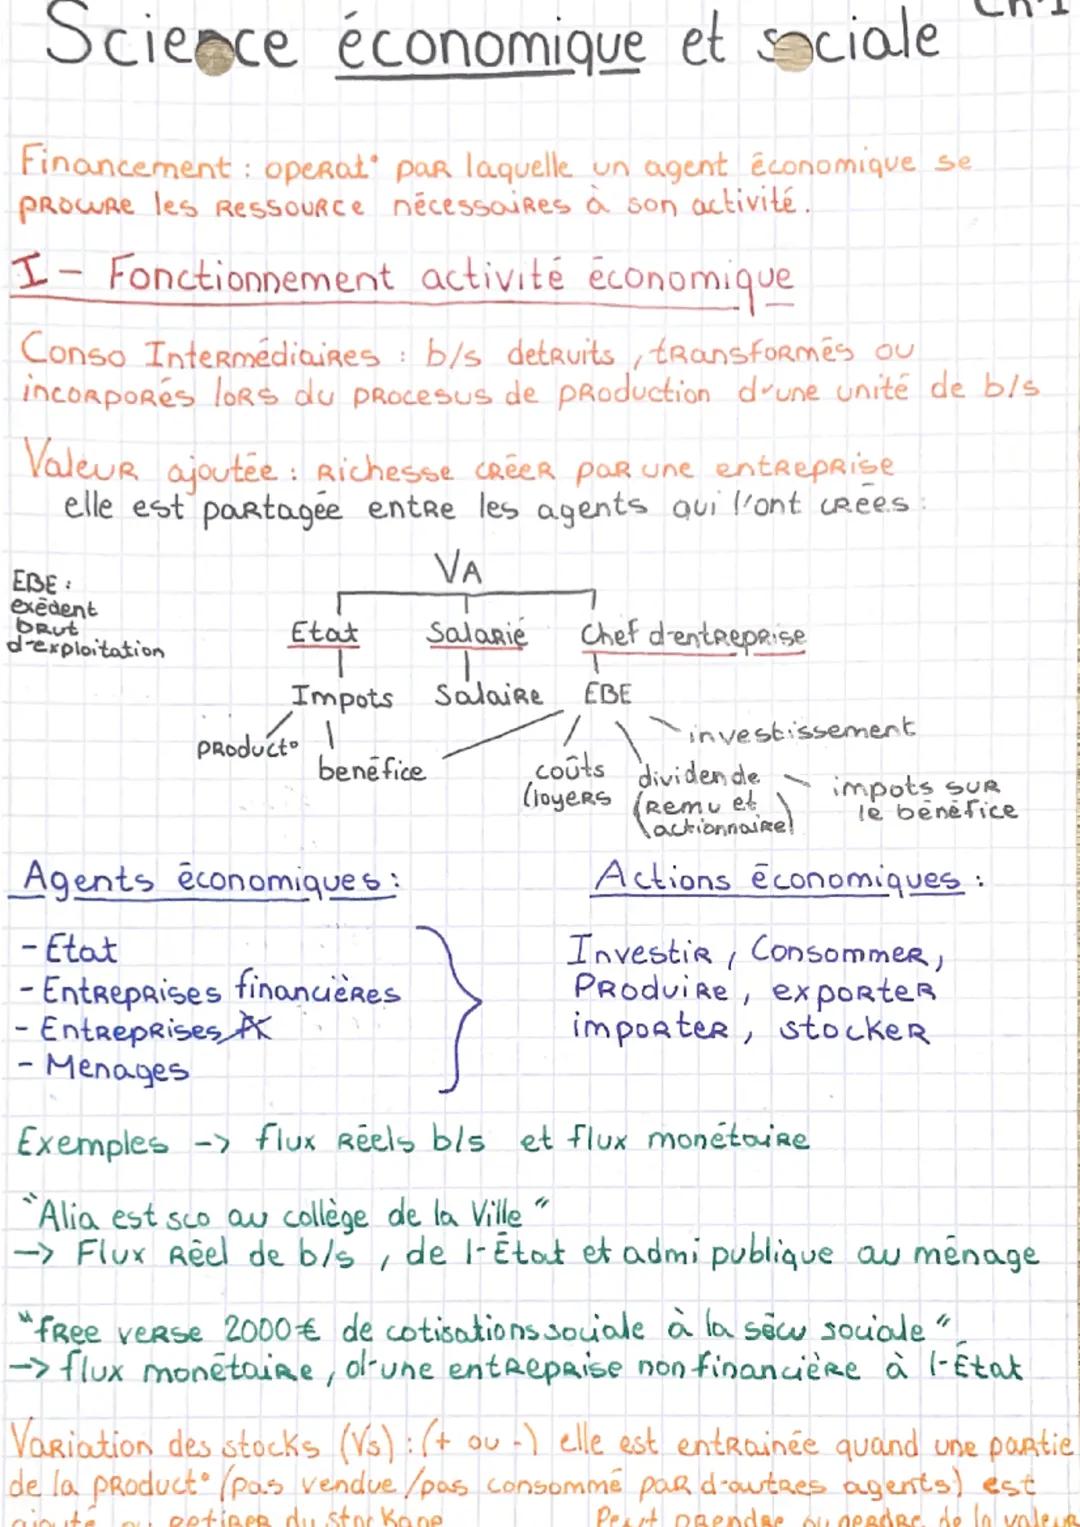 Science économique et sociale Ch.1
Financement : operat° par laquelle un agent économique se
procure les ressource nécessaires à son activité.
I - Fonctionnement activité économique
Conso Intermédiaires : b/s detruits, transformés ou
incorporés lors du procesus de production d'une unité de b/s
Valeur ajoutée : Richesse créer par une entreprise
elle est partagée entre les agents qui l'ont créés :
VA
EBE :
exédent
brut
d'exploitation
Etat Salarié Chef d'entreprise
Impots Salaire EBE
product° bénéfice
investissement
coûts
(loyers
dividende
(Remu et
actionnaire)
impots sur
le bénéfice
Agents économiques : Actions économiques :
- Etat
- Entreprises financières
- Entreprises
- Menages
Investir, Consommer,
Produire, exporter
importer, stocker
Exemples -> flux Réels b/s et flux monétaire
"Alia est sco au collège de la Ville"
-> Flux Réel de b/s, de l'État et admi publique au ménage
"free verse 2000€ de cotisations sociale à la sécu sociale"
-> flux monétaire, d'une entreprise non financière à l'État
Variation des stocks (Vs) : (+ ou -) elle est entrainée quand une partie
de la product° (pas vendue/pas consommé par d'autres agents) est
ajouté ou retirer du stockage Peut prendre ou perdre de la valeur